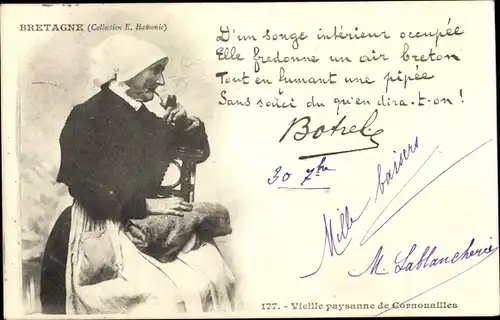 BRETAGNE (Collection E. Hamonic)
D'un songe intérieur occupée
Elle fredonne un air breton
Tout en fumant une pipée
Sans souci du qu'en dira-t-on !
Botrel
30 7bre
Mille baisers
M. Lablancherie
177. - Vieille paysanne de Cornouailles